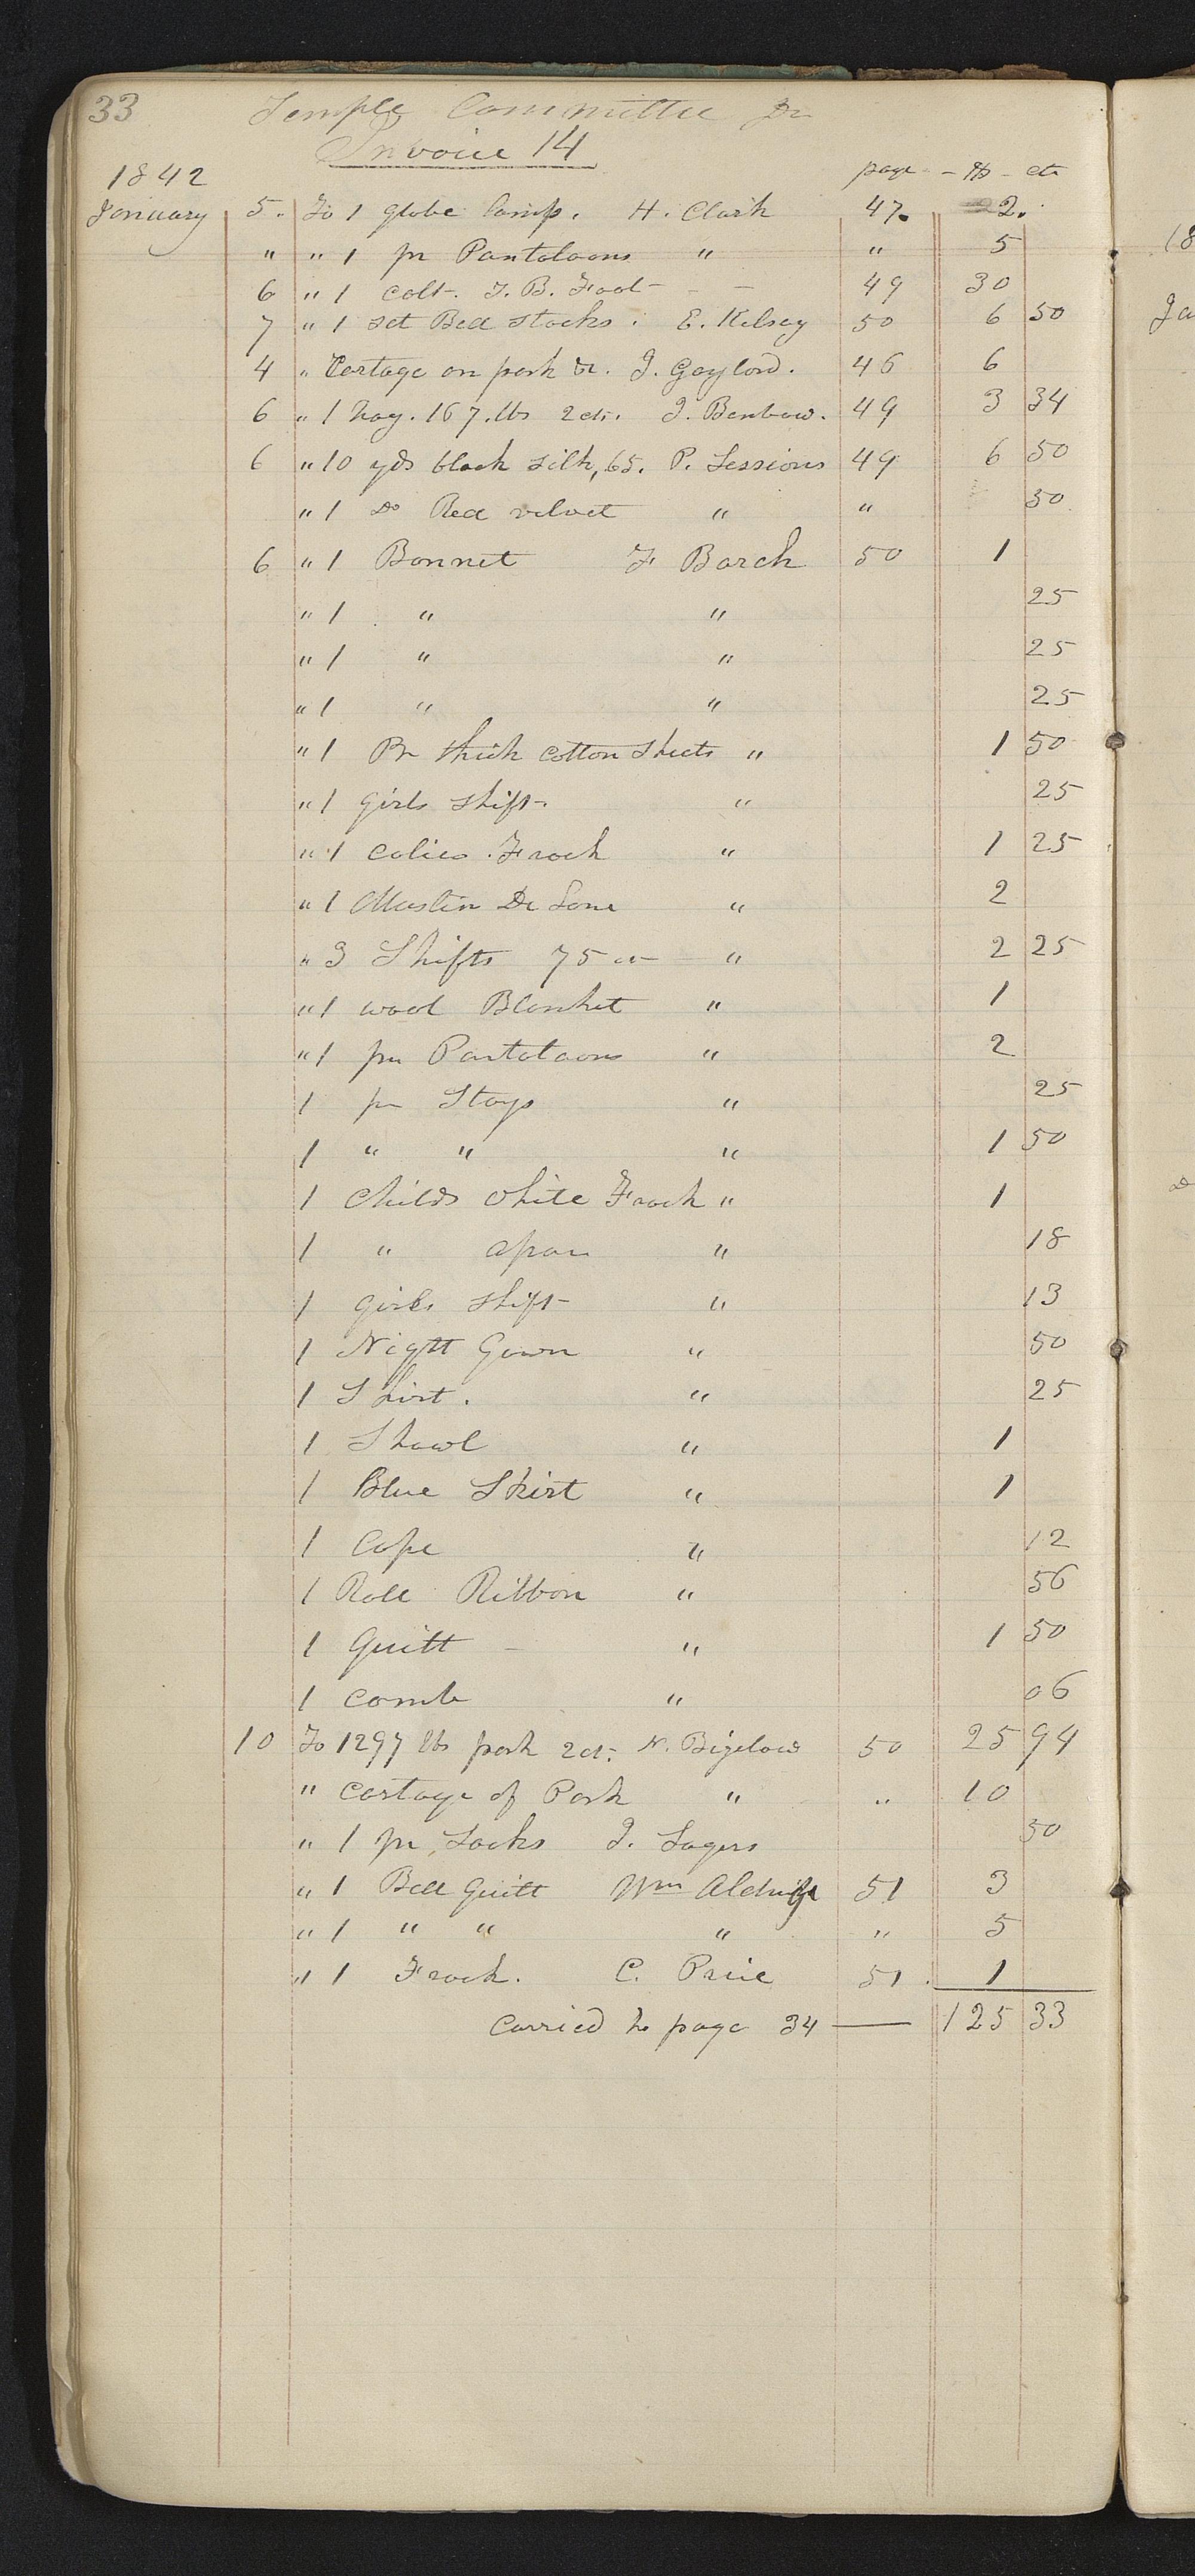 33 Temple Committee Dr
Invoice 14
1842 page - $ - cts
January 5. To 1 globe Lamp. H. Clark 47. 2.
" " 1 pr Pantaloons " " 5
6 " 1 Colt - T. B. Foot - - 49 30
7 " 1 set Bed stocks . E. Kelsey 50 6 50
4 " Cartage on pork &c. J. Gaylord. 46 6
6 " 1 hog. 167. lbs 2cts. J. Benbow. 49 3 34
6 " 10 yds black silk, 65. P. Sessions 49 6 50
" 1 Do Red velvet " " 50
6 " 1 Bonnet F Barch 50 1
" 1 " " 25
" 1 " " 25
" 1 " " 25
" 1 Pr thick cotton Sheets " 1 50
" 1 girls shift - " 25
" 1 calico Frock " 1 25
" 1 Muslin De Lane " 2
" 3 Shifts 75 cts - " 2 25
" 1 wool Blanket " 1
" 1 pr Pantaloons " 2
1 pr Stays " 25
1 " " " 1 50
1 Childs white Frock " 1
1 " apron " 18
1 girls shift - " 13
1 Night Gown " 50
1 Shirt . " 25
1 Shawl " 1
1 Blue Skirt " 1
1 Cape " 12
1 Roll Ribbon " 56
1 Quilt - " 1 50
1 comb " 06
10 To 1297 lbs pork 2ct. N. Bigelow 50 25 94
" Cartage of Pork " " 10
" 1 pr Socks J. Sagers 50
" 1 Bed Quilt Wm Aldridge 51 3
" 1 " " " " 5
" 1 Frock. C. Price 51 . 1
Carried to page 34 — 125 33
18
Ja